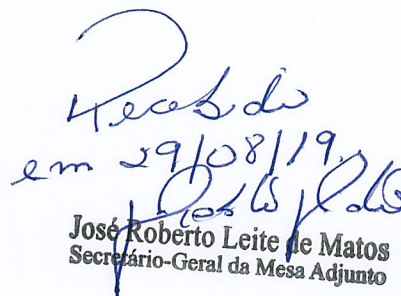 Recebido
em 29/08/19.
José Roberto Leite de Matos
Secretário-Geral da Mesa Adjunto